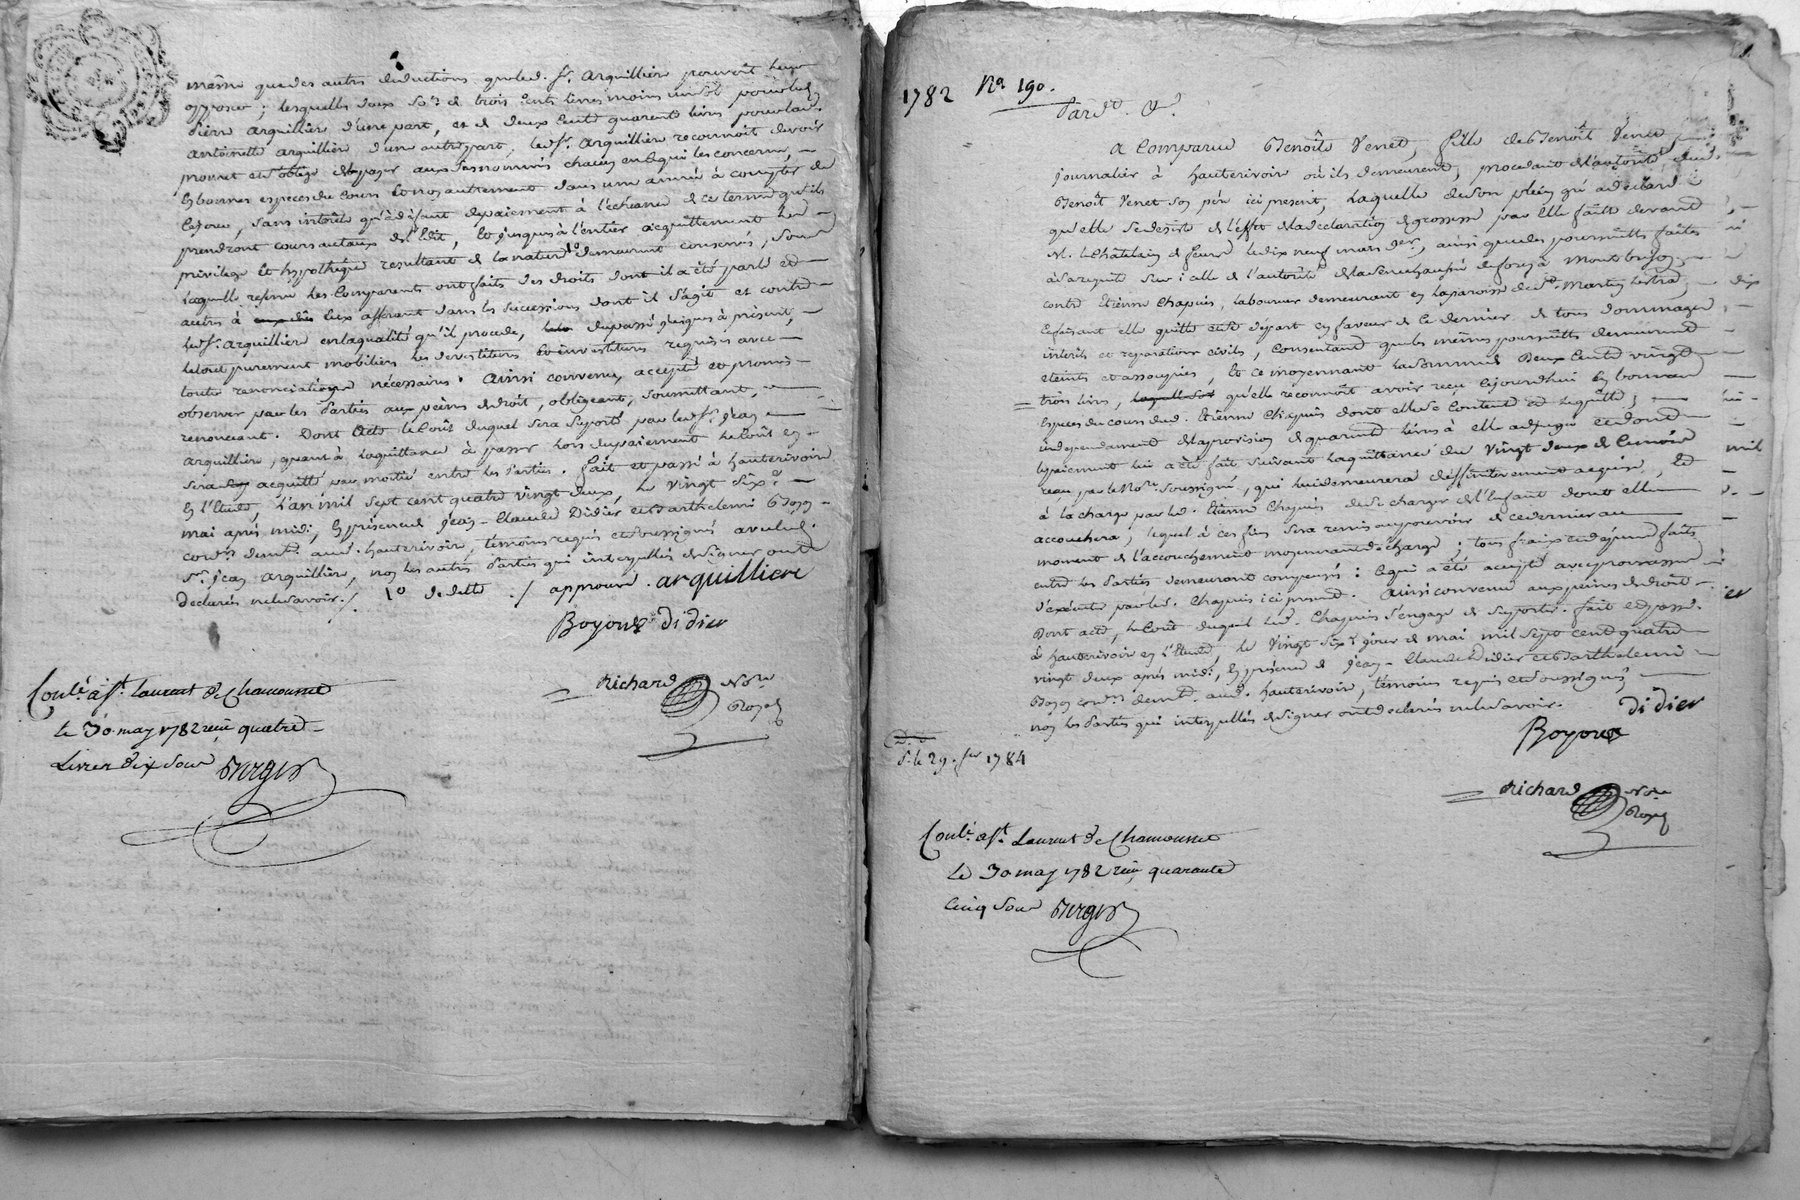 même que des autres deductions que led. Sr. Arquilliere pouvoit leur
opposer ; lesquelles deux so.es de trois cents livres moins un sol pour led.
Pierre Arquillier d'une part, et de deux cent quarente livres pour lad.
Antoinette Arquillier d'une autre part, led. Sr. Arquilliere reconnoit devoir
promet et s'oblige de payer aux susnommés chacun en ce qui les concerne,
en bonnes especes du cours et non autrement dans une année à compter de
ce jour, sans interêts qu'à défaut de paiement à l'échéance de ce terme qu'ils
prendront cours au taux de l'Edit, et jusques à l'entier acquittement les
privilege et hypothéque resultant de la nature 1o demeurant conservés, sous
laquelle reserve les Comparants ont faits des droits dont il a été parlé et
autres à eux afferant dans les successions dont il s'agit et contre
led. Sr. Arquilliere en la qualité qu'il procede, du passé jusques à présent,
le tout purement mobilier les devestitures et investitures requises avec
toute renonciation nécessaire. Ainsi convenu, accepté et promis
observer par les Parties aux peines de droit, obligeant, soumettant,
renonçant. Dont Acte le Coût duquel sera suporté par led. Sr. Jean
Arquilliere, quant à la quittance à passer lors du paiement le Coût en
sera acquitté par moitié entre les Parties. fait et passé à hauterivoire
En l'Etude, L'an mil sept cent quatre vingt deux, le Vingt six.e
mai après midi, En présence de Jean-Claude Didier et Barthelemi Boyon
cord.rs demt. aud. hauterivoir, témoins requis et soussignés avec led.
Sr. Jean Arquilliere, non les autres Parties qui interpellés de signer ont
déclarés ne le savoir ./. 1o de dette ./ approuvé. arquilliere
Boyon didier
Richard Notre
Royal
Conlé. à St. Laurent de Chamousset
le 30 may 1782 reçu quatre
Livres dix sous Berger
1782 No. 190.
Pard. Qe.
A Comparu Benoîte Venet, fille de Benoît Venet
journalier à hauterivoir où ils demeurent, procedant de l'autorité dud.
Benoît Venet son père ici présent, Laquelle de son plein gré a déclaré
qu'elle se désiste de l'effet de la déclaration de grossesse par Elle faite devant
M. le Châtelain de feurs le dix neuf mars der., ainsi que des poursuittes faites
à sa requête sur icelle de l'autorité de la Senechaussée de forez à Montbrison
contre Etienne Chapuis, laboureur demeurant en la paroisse de St. Martin Lestra,
Ce faisant elle quitte et se départ en faveur de ce dernier de tous dommages
interêts et reparations civiles, Consentant que les mêmes poursuittes demeurent
éteintes et assoupies, Et ce moyennant la somme de Deux Cents vingt
trois livres, qu'elle reconnoît avoir reçu cejourd'hui En bonnes
Especes du cours dud. Etienne Chapuis dont elle se Contente et l'en quitte ;
indépendament de la provision de quarante livres à elle adjugée et dont
le paiement lui a été fait suivant la quittance du Vingt deux de Ce mois
reçu par le Nore. Soussigné, qui lui demeurera deffinitivement acquise, et
à la charge par led. Etienne Chapuis de se charger de l'Enfant dont elle
accouchera, lequel à ces fins sera remis au pouvoir de ce dernier au
moment de l'accouchement moyennant décharge ; tous fraix et dépens faits
entre les Parties demeurant compensés : Ce qui a été accepté avec promesse
d'exécuter par led. Chapuis ici présent. Ainsi convenu aux peines de droit.
Dont acte, le Coût duquel led. Chapuis s'engage de suporter. fait et passé
à hauterivoir en l'Etude le Vingt Six.e jour de mai mil sept cent quatre
vingt deux après midi, En présence de Jean-Claude Didier et Barthelemi
Boyon cord.rs demt. aud. hauterivoir, témoins requis et soussignés,
non les Parties qui interpellés de signer ont déclarés ne le savoir. didier
Boyon
S. le 29. fer 1784
Richard Notre
Royal
Conlé. à St. Laurent de Chamousset
Le 30 may 1782 reçu quarante
Cinq Sous Berger